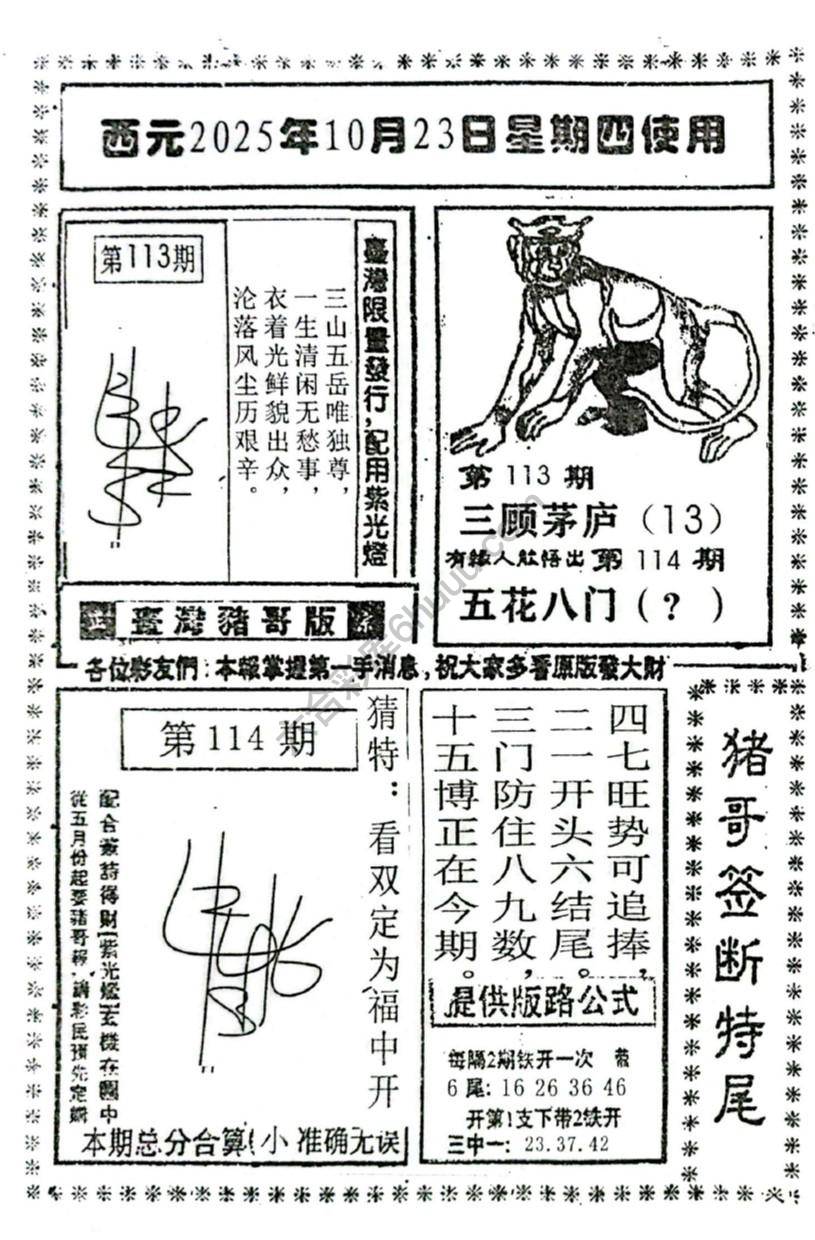 西元2025年10月23日星期四使用
第113期
臺灣限量發行,配用紫光燈
三山五岳唯独尊,
一生清闲无愁事,
衣着光鲜貌出众,
沦落风尘历艰辛。
第 113 期
三顾茅庐（13）
第 114 期
五花八门（？）
臺灣豬哥版
各位彩友們:本報掌握第一手消息,祝大家多看原版發大財
第114期
猜特：看双定为福中开
從五月份起要豬哥報,請彩民預先定購
本期总分合算(小 准确无误
四七旺势可追捧,
二一开头六结尾。
三门防住八九数,
十五博正在今期。
提供版路公式
每隔2期铁开一次
6尾: 16 26 36 46
开第1支下带2铁开
三中一: 23.37.42
猪哥签断特尾